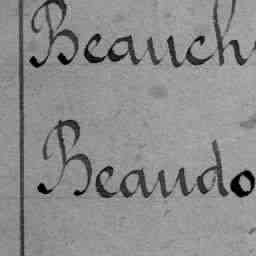 Beauch
Beaudo